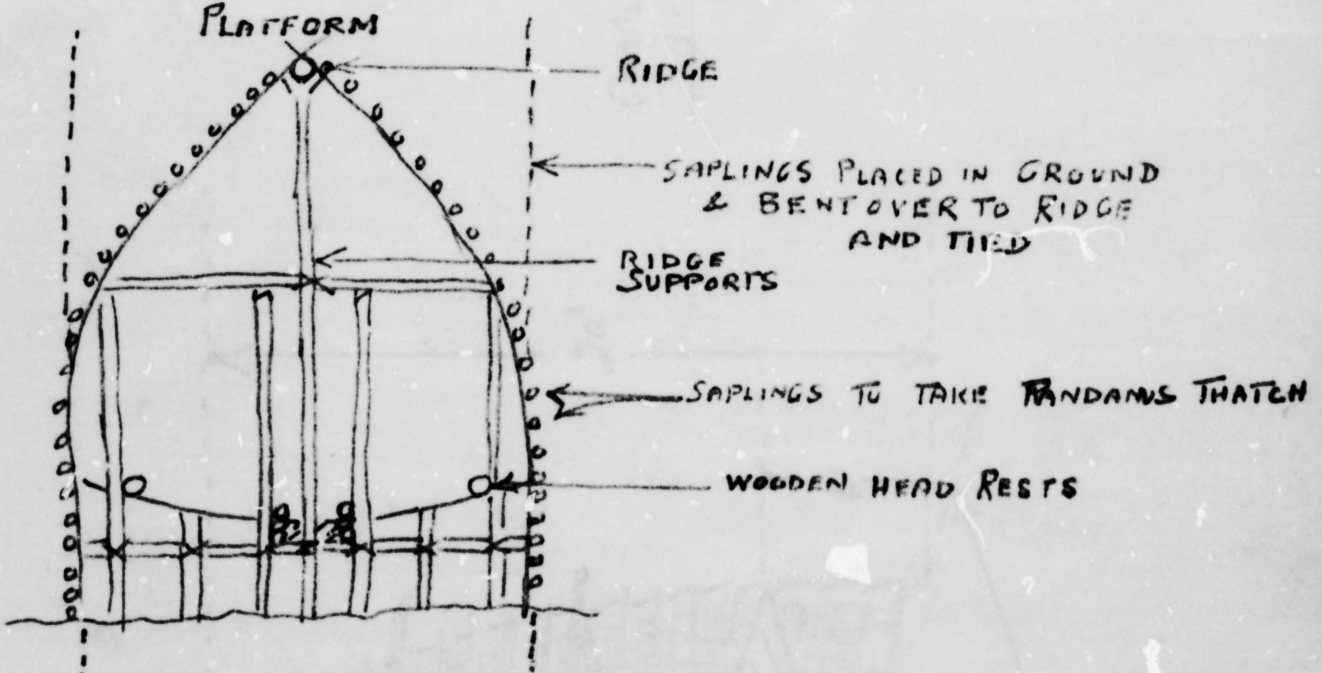 PLATFORM
RIDGE
SAPLINGS PLACED IN GROUND
& BENT OVER TO RIDGE
AND TIED
RIDGE
SUPPORTS
SAPLINGS TO TAKE PANDANUS THATCH
WOODEN HEAD RESTS